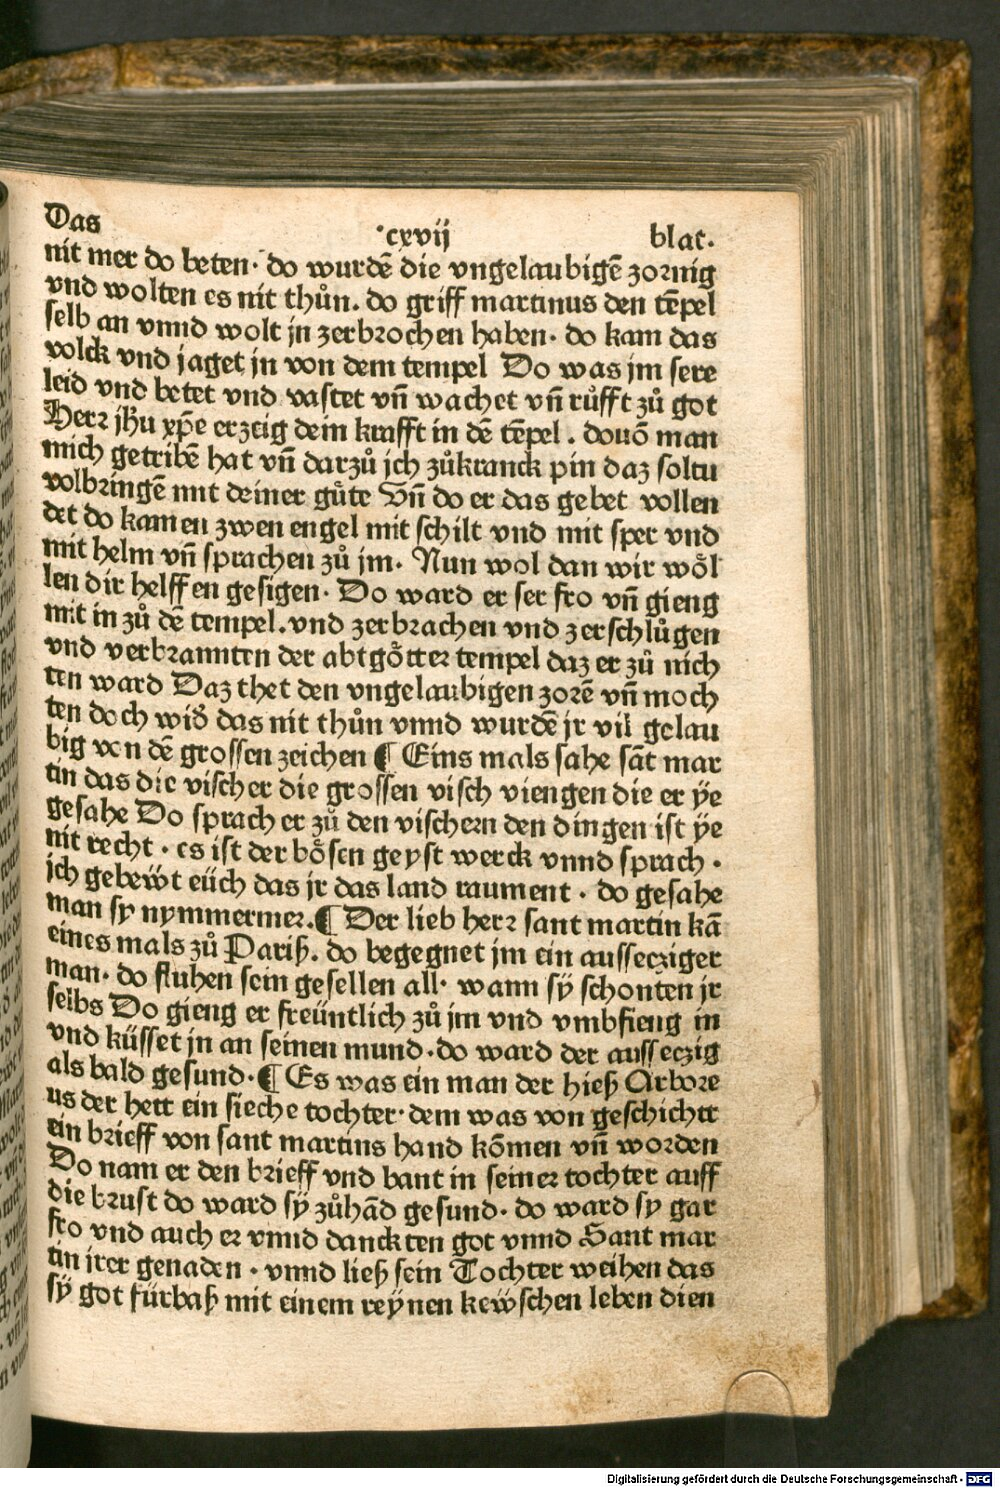 Das ·cxvij blat.
nit mer do beten· do wurdē die vngelaubigē zornig
vnd wolten es nit thůn. do griff martinus den tēpel
selb an vnnd wolt jn zerbrochen haben· do kam das
volck vnd jaget jn von dem tempel Do was jm sere
leid vnd betet vnd vastet vn̄ wachet vn̄ růfft zů got
Herr jhu xp̄e erzeig dein krafft in dē tēpel . douō man
mich getribē hat vn̄ darzů jch zůkranck pin daz soltu
volbringē mit deiner gůte Vn̄ do er das gebet vollen
det do kamen zwen engel mit schilt vnd mit sper vnd
mit helm vn̄ sprachen zů jm. Nun wol dan wir wöl
len dir helffen gesigen· Do ward er ser fro vn̄ gieng
mit in zů dē tempel.vnd zerbrachen vnd zerschlůgen
vnd verbrannten der abtgötter tempel daz er zů nich
ten ward Daz thet den vngelaubigen zorē vn̄ moch
ten doch wid̄ das nit thůn vnnd wurdē jr vil gelau
big von dē grossen zeichen ¶ Eins mals sahe sāt mar
tin das die vischer die grossen visch viengen die er ÿe
gesahe Do sprach er zů den vischern den dingen ist ÿe
nit recht · es ist der bösen geyst werck vnnd sprach ·
jch gebeẅt eüch das jr das land raument · do gesahe
man sy nymmermer.¶ Der lieb herr sant martin kā
eines mals zů Pariß. do begegnet jm ein aussecziger
man· do fluhen sein gesellen all· wann sÿ schonten jr
selbs Do gieng er freüntlich zů jm vnd vmbfieng in
vnd küsset jn an seinen mund·do ward der ausseczig
als bald gesund·¶ Es was ein man der hieß Arbore
us der hett ein sieche tochter· dem was von geschicht
ein brieff von sant martins hand kōmen vn̄ worden
Do nam er den brieff vnd bant in seiner tochter auff
die brust do ward sÿ zůhād gesund· do ward sy gar
fro vnd auch er vnnd danckten got vnnd Sant mar
tin irer genaden · vnnd ließ sein Tochter weihen das
sÿ got fürbaß mit einem reÿnen keẅschen leben dien
Digitalisierung gefördert durch die Deutsche Forschungsgemeinschaft - DFG